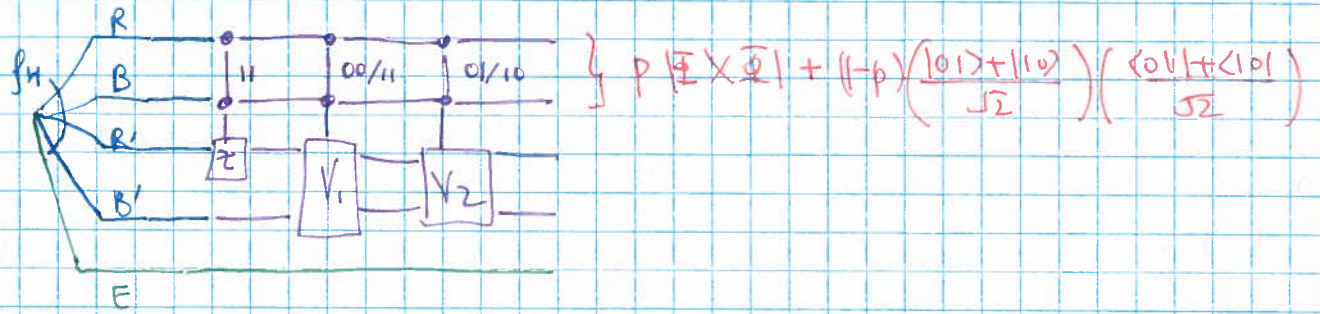 R
ρ_H
B
R'
B'
E
11
00/11
01/10
τ
V₁
V₂
} p |Φ⟩⟨Φ| + (1-p) ( |01⟩+|10⟩ / √2 ) ( ⟨01|+⟨10| / √2 )